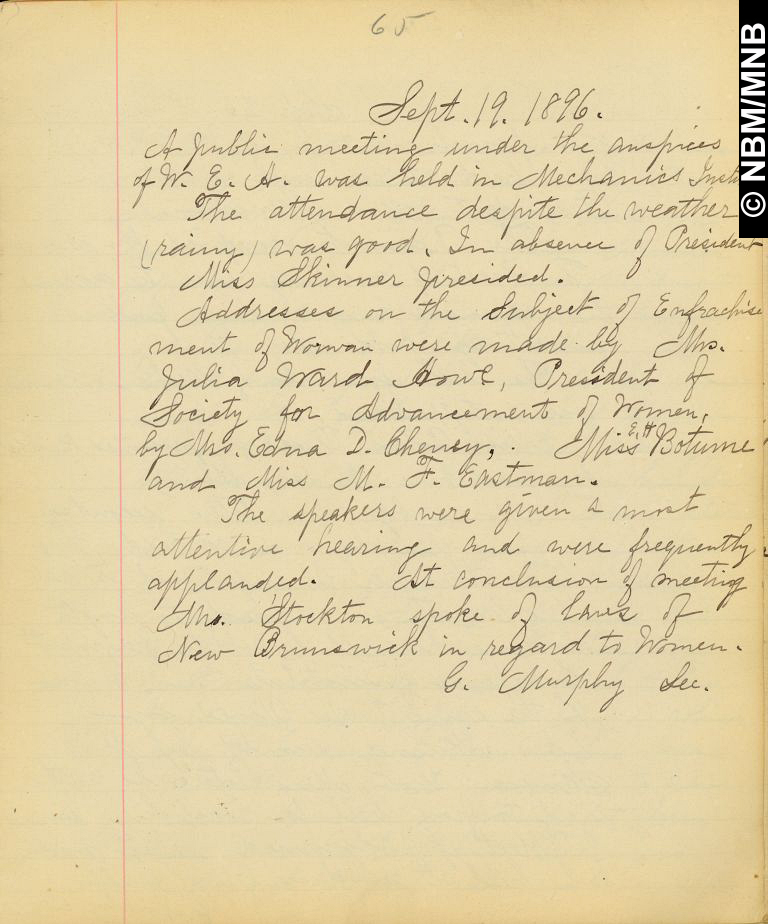 65
© NBM/MNB
Sept. 19. 1896.
A public meeting under the auspices
of W. E. A. was held in Mechanics Inst
The attendance despite the weather
(rainy) was good. In absence of President
Miss Skinner presided.
Addresses on the Subject of Enfrachise
ment of Woman were made by Mrs.
Julia Ward Howe, President of
Society for Advancement of Women,
by Mrs. Edna D. Cheney, . Miss E. H Botume
and Miss M. F. Eastman.
The speakers were given a most
attentive hearing and were frequently
applauded. At conclusion of meeting
Mrs. Stockton spoke of laws of
New Brunswick in regard to Women.
G. Murphy Sec.